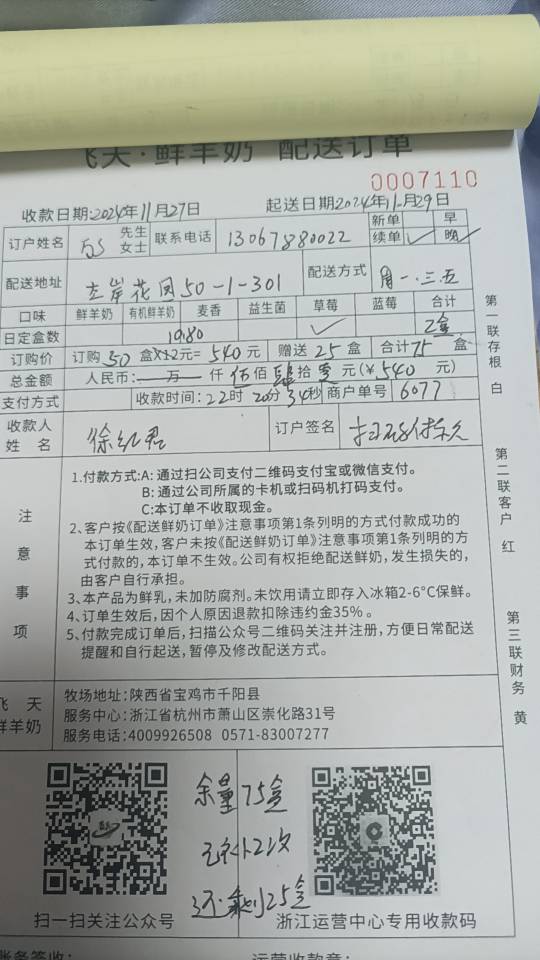 飞天·鲜羊奶 配送订单
0007110
收款日期:2024年11月27日 起送日期2024年11月29日
订户姓名 先生 女士 联系电话 13067880022 新单 续单 ✓ 早 晚 ✓
配送地址 左岸花园50-1-301 配送方式 周一.三.五
口味 鲜羊奶 有机鲜羊奶 麦香 益生菌 草莓 蓝莓 合计
日定盒数 1980 ✓ 2盒
订购价 订购50盒X12元=540元 赠送25盒 合计75盒
总金额 人民币: 万 仟 伍佰 肆拾 元(¥540 元)
支付方式 收款时间:22时20分34秒 商户单号 6077
收款人姓名 徐红君 订户签名
注意事项
1.付款方式:A: 通过扫公司支付二维码支付宝或微信支付。
B: 通过公司所属的卡机或扫码机打码支付。
C:本订单不收取现金。
2、客户按《配送鲜奶订单》注意事项第1条列明的方式付款成功的
本订单生效,客户未按《配送鲜奶订单》注意事项第1条列明的方
式付款的,本订单不生效。公司有权拒绝配送鲜奶,发生损失的,
由客户自行承担。
3、本产品为鲜乳,未加防腐剂。未饮用请立即存入冰箱2-6°C保鲜。
4、订单生效后,因个人原因退款扣除违约金35%。
5、付款完成订单后,扫描公众号二维码关注并注册,方便日常配送
提醒和自行起送,暂停及修改配送方式。
飞天鲜羊奶
牧场地址:陕西省宝鸡市千阳县
服务中心:浙江省杭州市萧山区崇化路31号
服务电话:4009926508 0571-83007277
第一联存根 白
第二联客户 红
第三联财务 黄
余量75盒
还剩25盒
扫一扫关注公众号
浙江运营中心专用收款码
账务签收:
运营收款章: